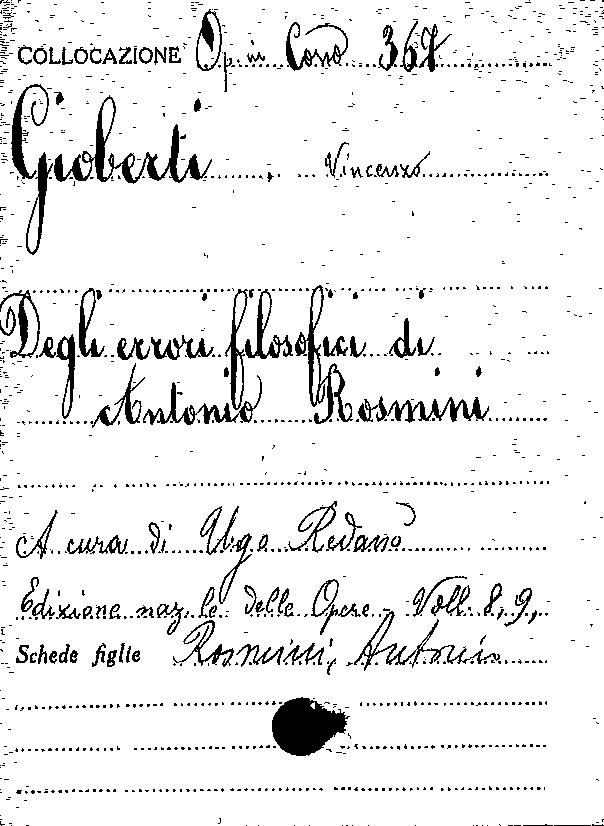 COLLOCAZIONE Op. in Corso 367
Gioberti, Vincenzo
Degli errori filosofici di
Antonio Rosmini
A cura di Ugo Redanò
Edizione naz.le delle Opere - Voll. 8, 9,
Schede figlie Rosmini, Antonio